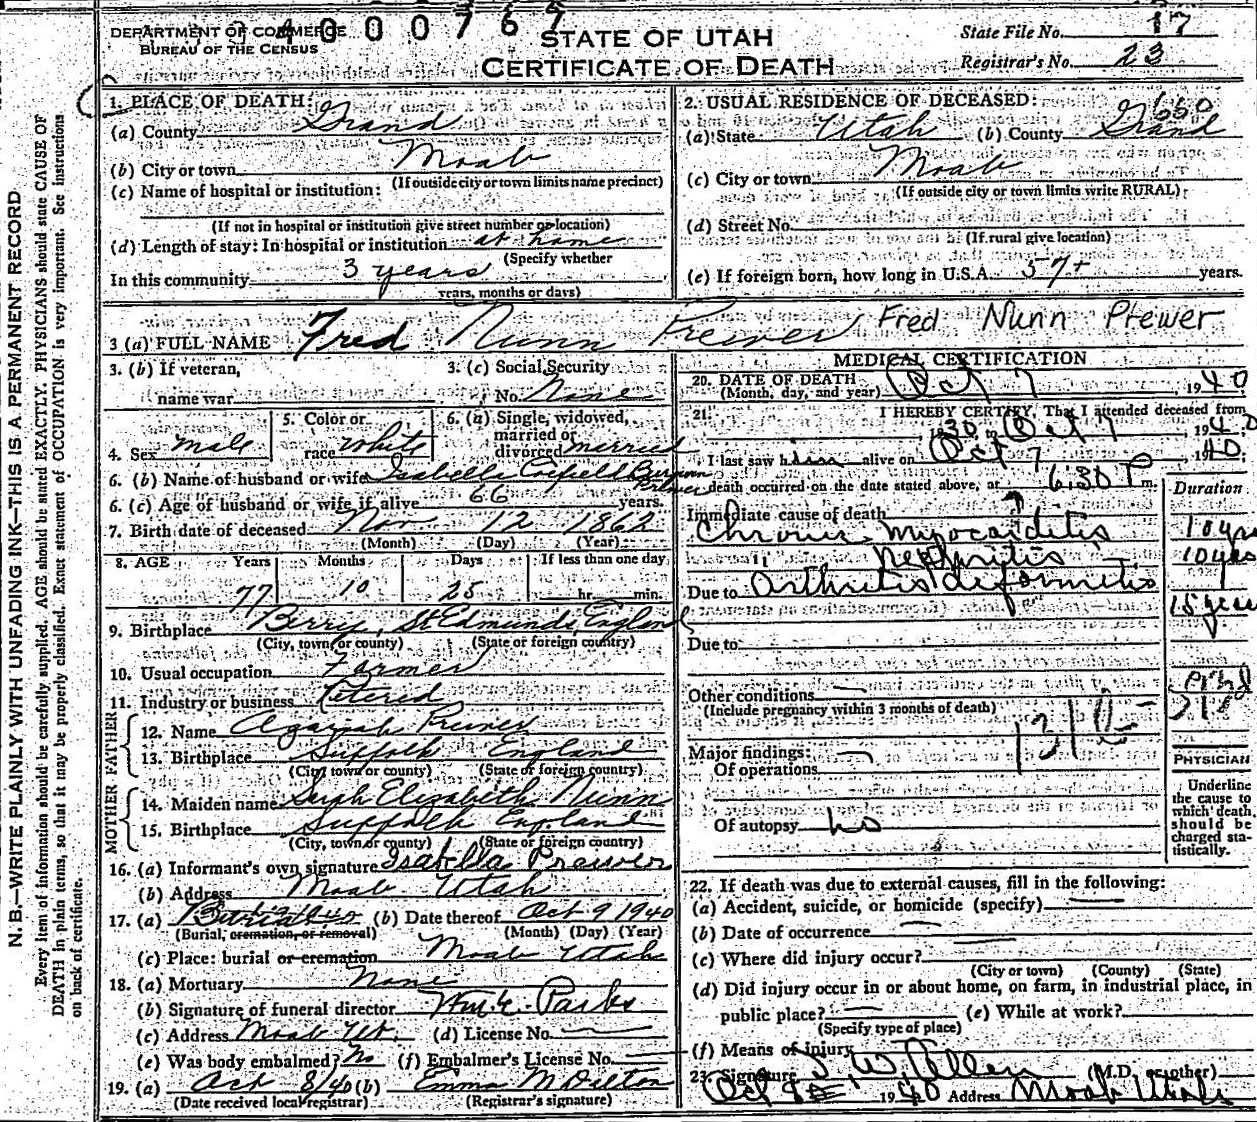 DEPARTMENT OF COMMERCE
BUREAU OF THE CENSUS
STATE OF UTAH
CERTIFICATE OF DEATH
State File No. 17
Registrar's No. 23
N. B.—WRITE PLAINLY WITH UNFADING INK—THIS IS A PERMANENT RECORD
Every item of information should be carefully supplied. AGE should be stated EXACTLY. PHYSICIANS should state CAUSE OF
DEATH in plain terms, so that it may be properly classified. Exact statement of OCCUPATION is very important. See instructions
on back of certificate.
1. PLACE OF DEATH:
(a) County Grand
(b) City or town Moab
(If outside city or town limits name precinct)
(c) Name of hospital or institution:
(If not in hospital or institution give street number or location)
(d) Length of stay: In hospital or institution at home
(Specify whether
In this community 3 years
years, months or days)
2. USUAL RESIDENCE OF DECEASED:
660
(a) State Utah (b) County Grand
(c) City or town Moab
(If outside city or town limits write RURAL)
(d) Street No.
(If rural give location)
(e) If foreign born, how long in U.S.A. 57+ years.
3 (a) FULL NAME Fred Nunn Prewer Fred Nunn Prewer
3. (b) If veteran,
name war
3. (c) Social Security
No. None
4. Sex male
5. Color or
race white
6. (a) Single, widowed,
married or
divorced married
6. (b) Name of husband or wife Isabella
6. (c) Age of husband or wife if alive 66 years.
7. Birth date of deceased Nov. 12 1862
(Month) (Day) (Year)
8. AGE Years Months Days If less than one day
77 10 25 hr. min.
9. Birthplace Berry, St Edmunds, England
(City, town or county) (State or foreign country)
10. Usual occupation Farmer
11. Industry or business Retered
FATHER
12. Name Azariah Prewer
13. Birthplace Suffolk England
(City, town or county) (State or foreign country)
MOTHER
14. Maiden name Sarah Elizabeth Nunn
15. Birthplace Suffolk England
(City, town or county) (State or foreign country)
16. (a) Informant's own signature Isabella Prewer
(b) Address Moab Utah
17. (a) Burial (b) Date thereof Oct 9 1940
(Burial, cremation, or removal) (Month) (Day) (Year)
(c) Place: burial or cremation Moab Utah
18. (a) Mortuary None
(b) Signature of funeral director Wm. E. Parks
(c) Address Moab Ut. (d) License No.
(e) Was body embalmed? No (f) Embalmer's License No.
19. (a) Oct 8/40 (b) Emma M Dalton
(Date received local registrar) (Registrar's signature)
MEDICAL CERTIFICATION
20. DATE OF DEATH Oct 7 1940
(Month, day, and year)
21. I HEREBY CERTIFY, That I attended deceased from
30, Oct 7 1940
I last saw him alive on Oct 7 1940;
death occurred on the date stated above, at 6:30 P m.
Duration
Immediate cause of death
Chronic Myocarditis 10 yrs
" Nephritis 10 yrs
Due to Arthritis deformitis 15 years
Due to
Other conditions
(Include pregnancy within 3 months of death)
Major findings:
Of operations
Of autopsy no
PHYSICIAN
Underline
the cause to
which death
should be
charged sta-
tistically.
22. If death was due to external causes, fill in the following:
(a) Accident, suicide, or homicide (specify)
(b) Date of occurrence
(c) Where did injury occur?
(City or town) (County) (State)
(d) Did injury occur in or about home, on farm, in industrial place, in
public place? (e) While at work?
(Specify type of place)
(f) Means of injury
23. Signature W. Allen (M.D. or other)
Oct 1940 Address Moab Utah